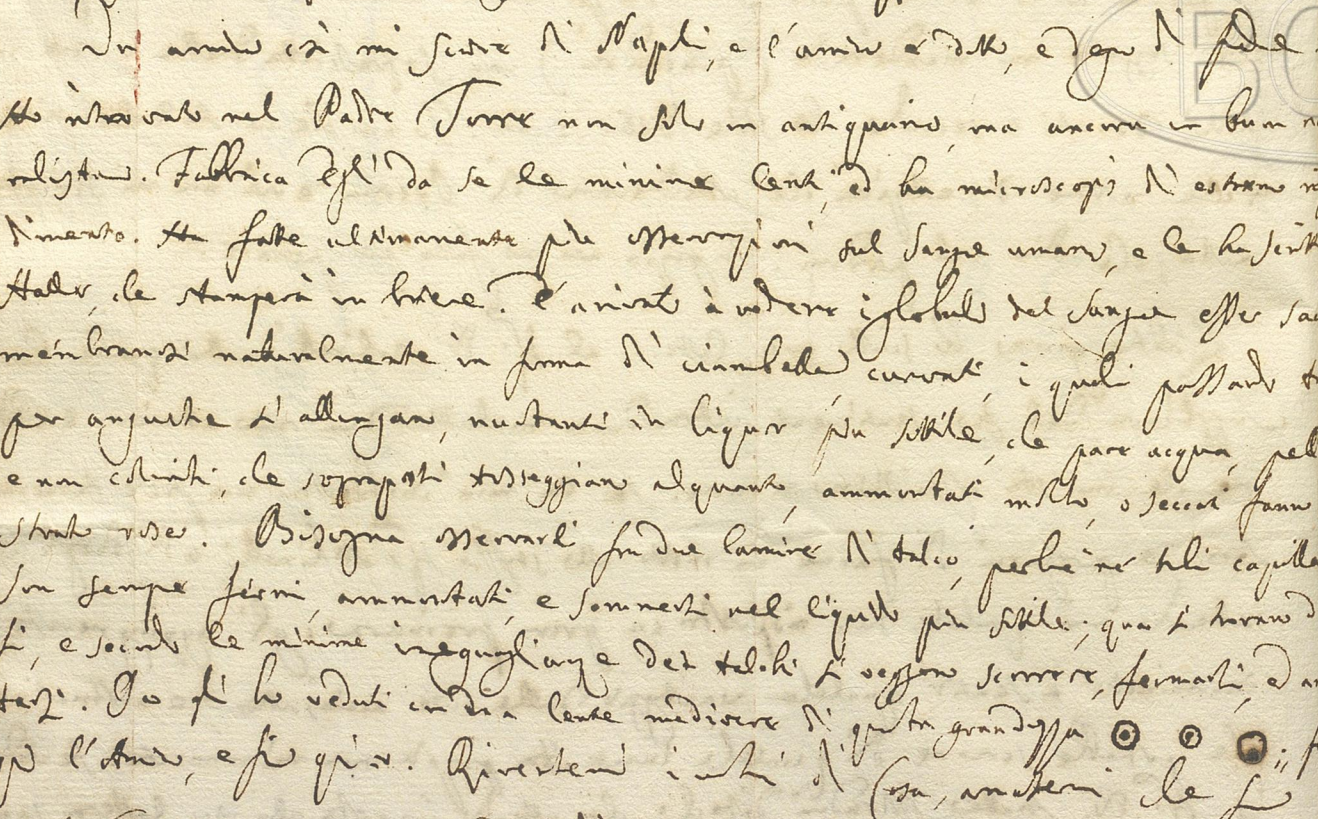 Un amico così mi scrive di Napoli, e l'amico è dotto, e degno di fede
Ho ritrovato nel Padre Torre non solo un antiquario, ma ancora un buon
Fabbrica Egli da se le minime lenti, ed ha microscopi di estremo
dimento. Ha fatte ultimamente più osservazioni sul sangue umano, e le ha
Haller, che stamperà in breve. È arrivato à vedere i globuli del sangue esser
membranosi naturalmente in forma di ciambella curvati, i quali passando
per angustie si allungano, nuotanti in liquor più sottile, che pare acqua,
e non coloriti, che soprapposti rosseggiano alquanto, ammontati molto, o seccati fanno
strato roseo. Bisogna osservarli fra due lamine di talco, perché ne tubi
son sempre fermi, ammontati, e sommersi nel liquido più sottile; qua si trovano
si, e secondo le minime ineguaglianze dei talchi si veggono scorrere, fermarsi, ed
Io gli ho veduti con una lente mediocre di questa grandezza
qui l'Amico, e fin qui io. Riveritemi i vostri di Casa, amatemi che